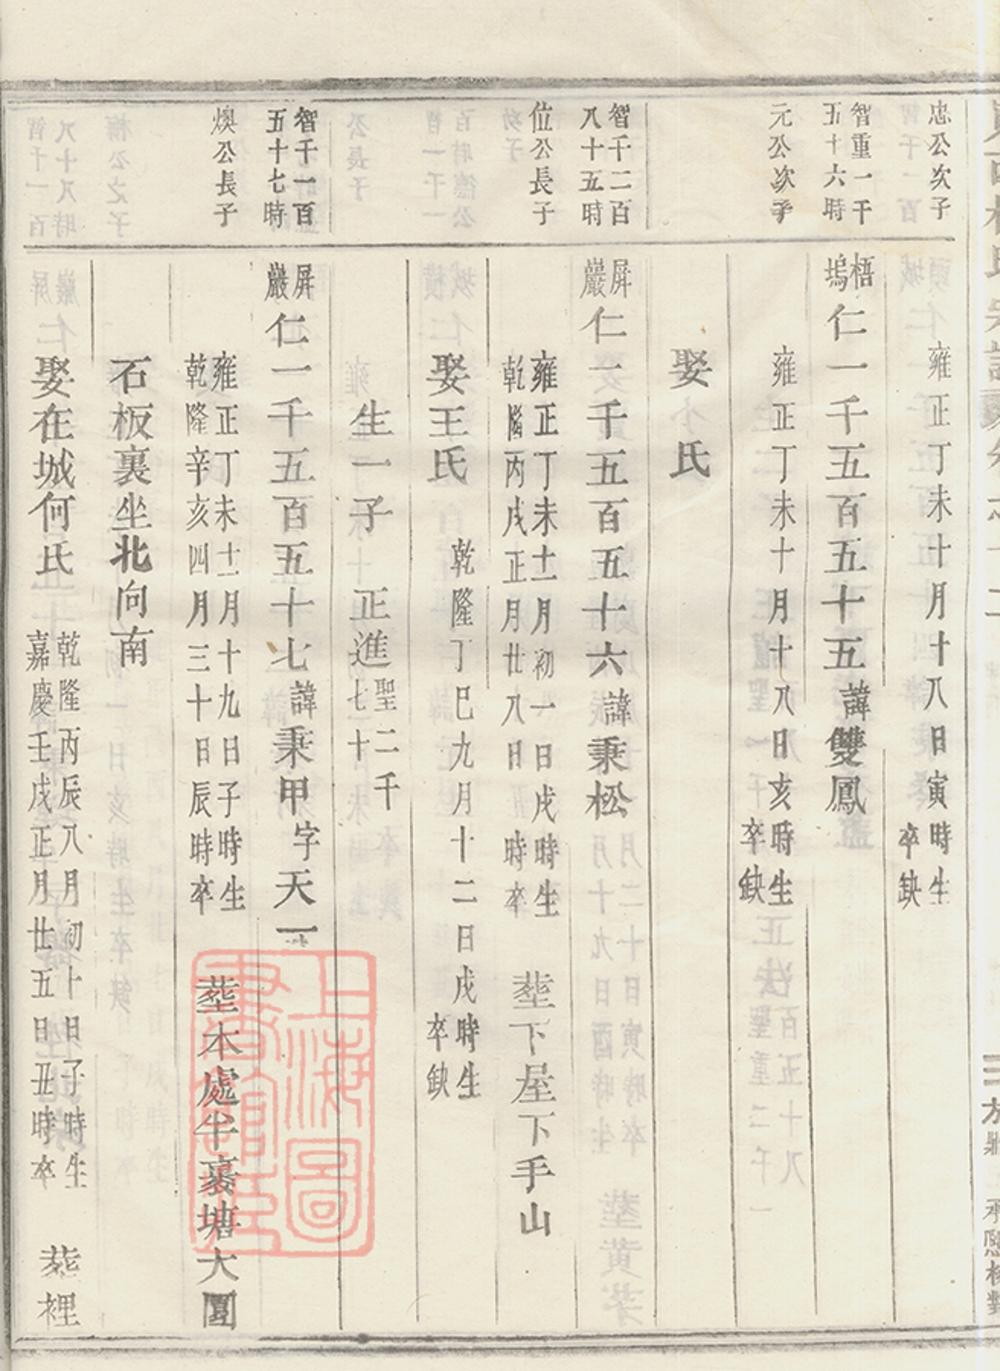 忠公次子
雍正丁未十月十八日寅時生
卒缺
智重一千
五十六時
元公次子
梧
塢
仁一千五百五十五諱雙鳳
雍正丁未十月十八日亥時生
卒缺
娶 氏
智千二百
八十五時
位公長子
屏
巖
仁一千五百五十六諱秉松
雍正丁未十二月初一日戌時生
乾隆丙戌正月廿八日 時卒
塟下屋下手山
娶王氏
乾隆丁巳九月十二日戌時生
卒缺
生一子 正進
聖二千
七十
智千一百
五十七時
煥公長子
屏
巖
仁一千五百五十七諱秉甲字天一
雍正丁未十二月十九日子時生
乾隆辛亥四月三十日辰時卒
塟本處半裏塘大圓
石板裏坐北向南
娶在城何氏
乾隆丙辰八月初十日子時生
嘉慶壬戌正月廿五日丑時卒
塟裡
上海圖
書館藏